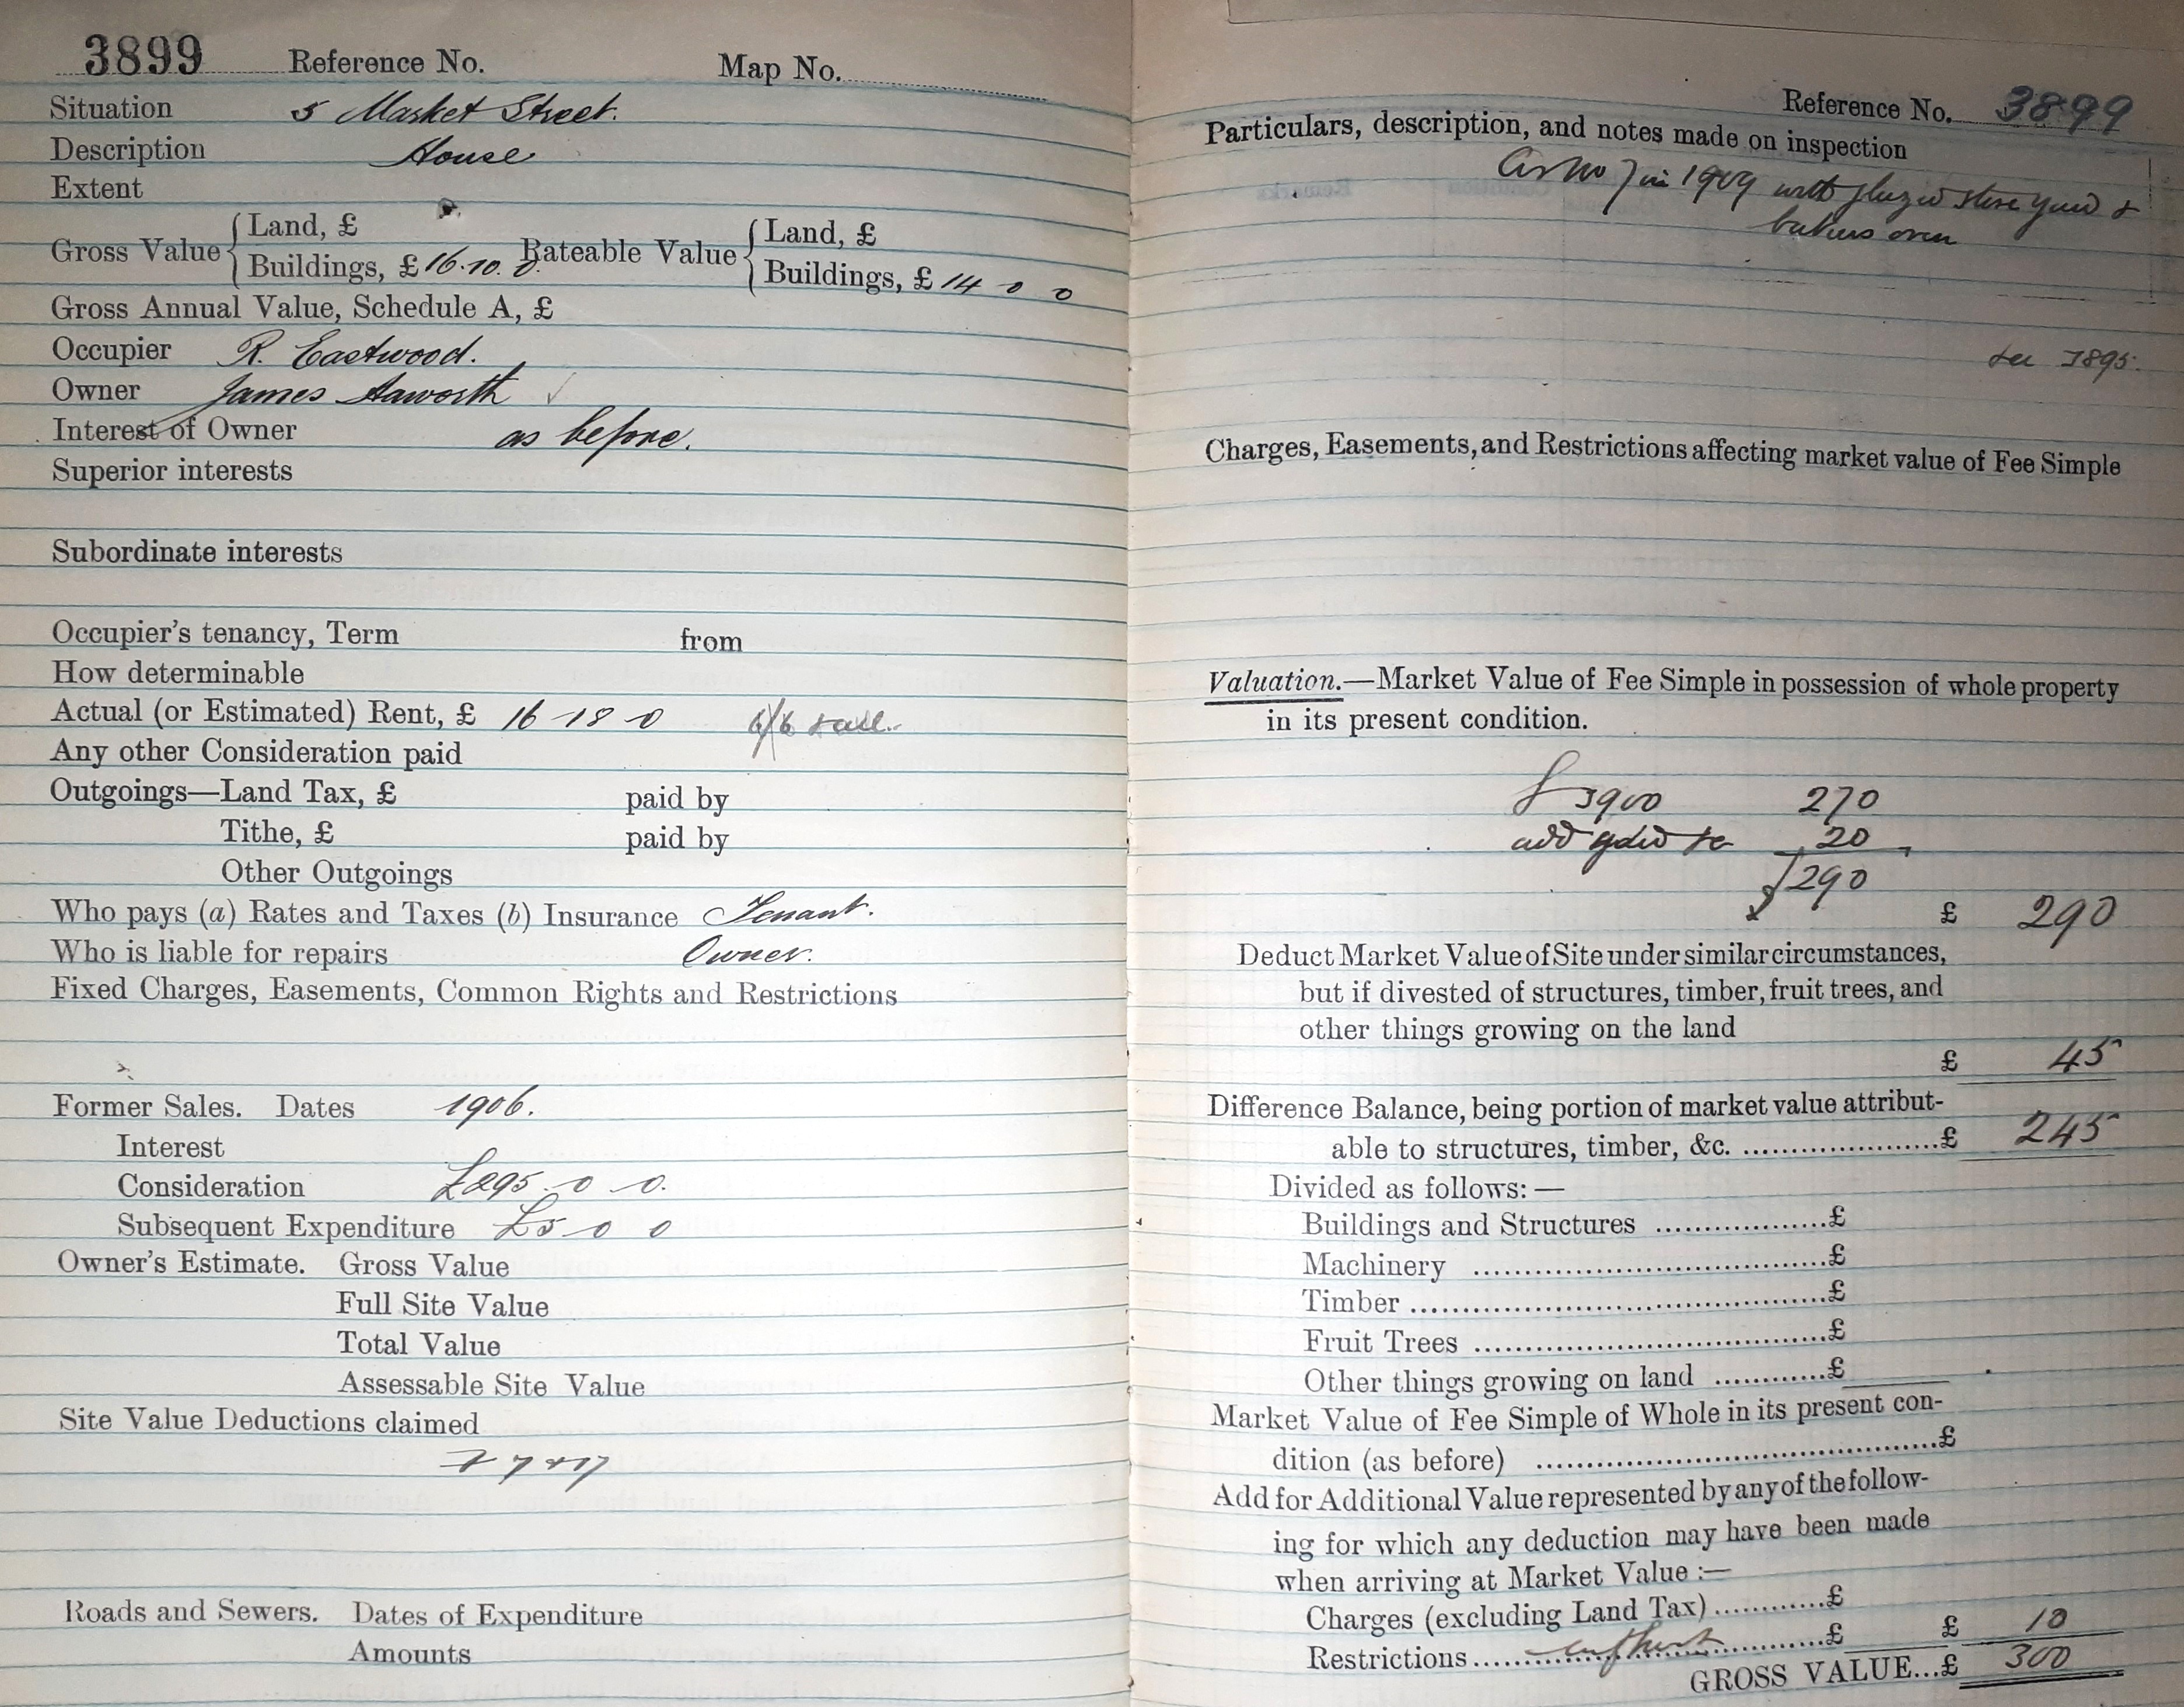 3899 Reference No. Map No.
Situation 5 Market Street.
Description House
Extent
Gross Value { Land, £ Rateable Value { Land, £
Buildings, £ 16.10.0 Buildings, £ 14 0 0
Gross Annual Value, Schedule A, £
Occupier R. Eastwood.
Owner James Haworth ✓
Interest of Owner as before.
Superior interests
Subordinate interests
Occupier's tenancy, Term from
How determinable
Actual (or Estimated) Rent, £ 16 18 0 6/6
Any other Consideration paid
Outgoings—Land Tax, £ paid by
Tithe, £ paid by
Other Outgoings
Who pays (a) Rates and Taxes (b) Insurance Tenant.
Who is liable for repairs Owner.
Fixed Charges, Easements, Common Rights and Restrictions
Former Sales. Dates 1906.
Interest
Consideration £295 0 0.
Subsequent Expenditure £5 0 0
Owner's Estimate. Gross Value
Full Site Value
Total Value
Assessable Site Value
Site Value Deductions claimed
Roads and Sewers. Dates of Expenditure
Amounts
Reference No. 3899
Particulars, description, and notes made on inspection
As No 7 in 1909 with glazed store yard &
bakers oven
see 3895.
Charges, Easements, and Restrictions affecting market value of Fee Simple
Valuation.—Market Value of Fee Simple in possession of whole property
in its present condition.
3900 270
add 20
290
£ 290
Deduct Market Value of Site under similar circumstances,
but if divested of structures, timber, fruit trees, and
other things growing on the land
£ 45
Difference Balance, being portion of market value attribut-
able to structures, timber, &c. ....................£ 245
Divided as follows:—
Buildings and Structures ....................£
Machinery ....................£
Timber ....................£
Fruit Trees ....................£
Other things growing on land ............£
Market Value of Fee Simple of Whole in its present con-
dition (as before) ....................£
Add for Additional Value represented by any of the follow-
ing for which any deduction may have been made
when arriving at Market Value :—
Charges (excluding Land Tax) ............£
Restrictions ....................£ £ 10
GROSS VALUE...£ 300